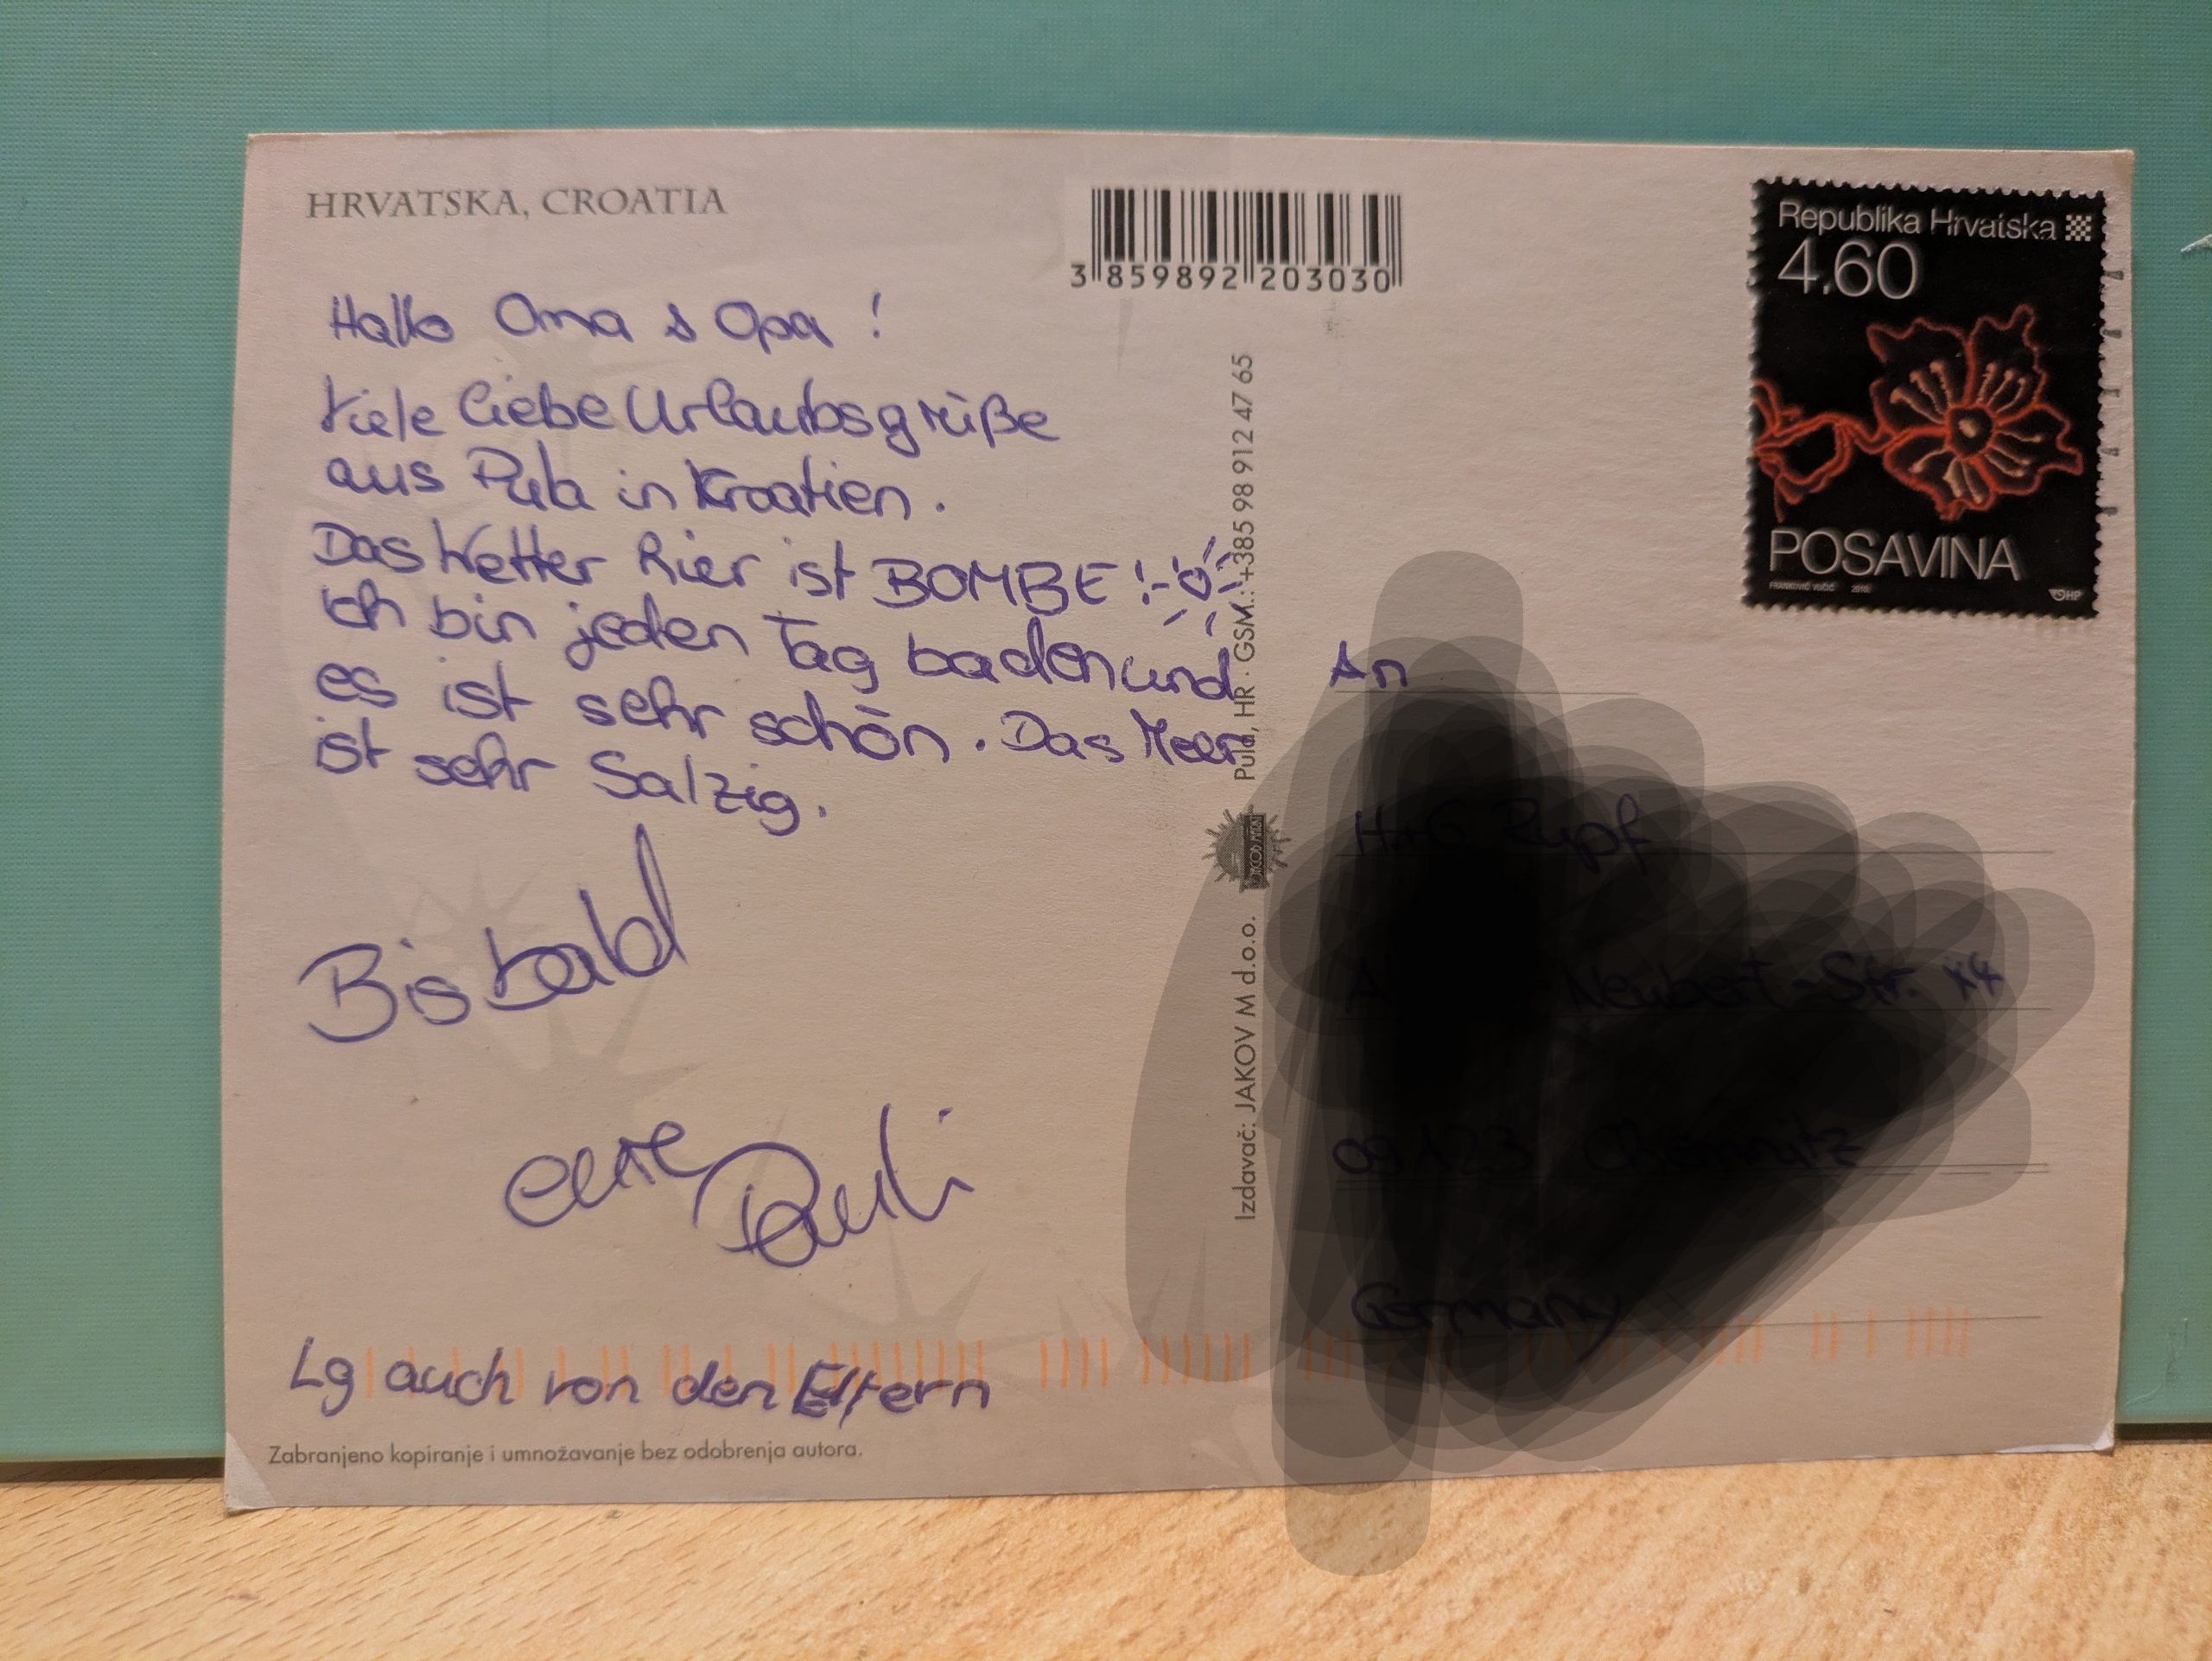 HRVATSKA, CROATIA
3 859892 203030
Republika Hrvatska
4.60
POSAVINA
FRANKOVIĆ VUČIĆ 2015
HP
Hallo Oma & Opa !
Viele liebe Urlaubsgrüße
aus Pula in Kroatien.
Das Wetter hier ist BOMBE!
Ich bin jeden Tag baden und
es ist sehr schön. Das Meer
ist sehr Salzig.
Bis bald
eure Pauli
Lg auch von den Eltern
Zabranjeno kopiranje i umnožavanje bez odobrenja autora.
Izdavač: JAKOV M d.o.o. Pula, HR · GSM.: +385 98 912 47 65
An